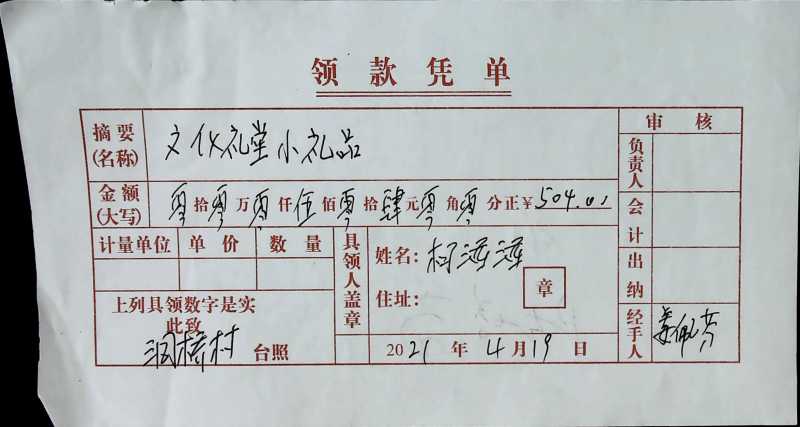 领款凭单
摘要 文化礼堂小礼品 审核
(名称) 负责人
金额 零拾零万零仟伍佰零拾肆元零角零分正¥504.01
(大写) 会计
计量单位 单价 数量 具领人盖章 姓名:柯
上列具领数字是实 住址: 章 出纳
此致
洞桥村 台照 2021年4月19日 经手人